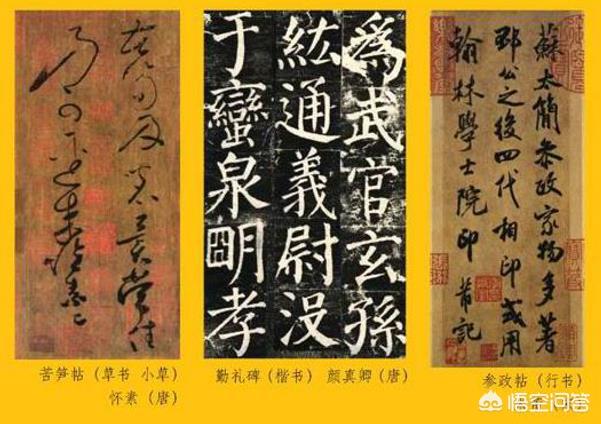 苦笋及茗異常佳
乃可逕來懷素上
苦笋帖（草书 小草）
怀素（唐）
爲武官玄孫
紘通義尉没
于蠻泉明孝
勤礼碑（楷书） 颜真卿（唐）
蘇太簡參政家物多著
邳公之後四代相印或用
翰林學士院印 芾記
参政帖（行书）
悟空问答